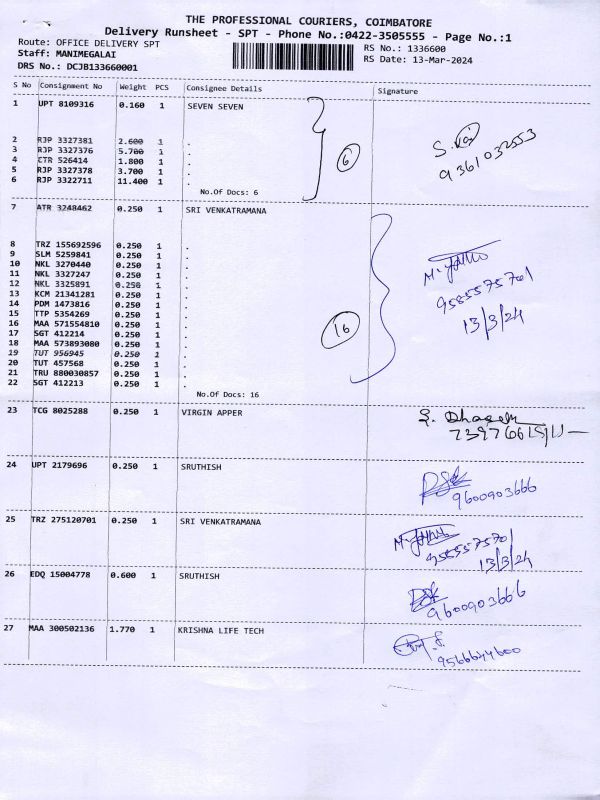 THE PROFESSIONAL COURIERS, COIMBATORE
Delivery Runsheet - SPT - Phone No.:0422-3505555 - Page No.:1
Route: OFFICE DELIVERY SPT
RS No.: 1336600
Staff: MANIMEGALAI
RS Date: 13-Mar-2024
DRS No.: DCJB133660001
S No Consignment No Weight PCS Consignee Details Signature
1 UPT 8109316 0.160 1 SEVEN SEVEN
2 RJP 3327381 2.600 1 .
3 RJP 3327376 5.700 1 .
4 CTR 526414 1.800 1 .
5 RJP 3327378 3.700 1 .
6 RJP 3322711 11.400 1 .
No.Of Docs: 6
6
9361032553
7 ATR 3248462 0.250 1 SRI VENKATRAMANA
8 TRZ 155692596 0.250 1 .
9 SLM 5259841 0.250 1 .
10 NKL 3270440 0.250 1 .
11 NKL 3327247 0.250 1 .
12 NKL 3325891 0.250 1 .
13 KCM 21341281 0.250 1 .
14 PDM 1473816 0.250 1 .
15 TTP 5354269 0.250 1 .
16 MAA 571554810 0.250 1 .
17 SGT 412214 0.250 1 .
18 MAA 573893080 0.250 1 .
19 TUT 956945 0.250 1 .
20 TUT 457568 0.250 1 .
21 TRU 880030857 0.250 1 .
22 SGT 412213 0.250 1 .
No.Of Docs: 16
16
9585575701
13/3/24
23 TCG 8025288 0.250 1 VIRGIN APPER
24 UPT 2179696 0.250 1 SRUTHISH
9600903666
25 TRZ 275120701 0.250 1 SRI VENKATRAMANA
9585575701
13/3/24
26 EDQ 15004778 0.600 1 SRUTHISH
9600903666
27 MAA 300502136 1.770 1 KRISHNA LIFE TECH
9566644600